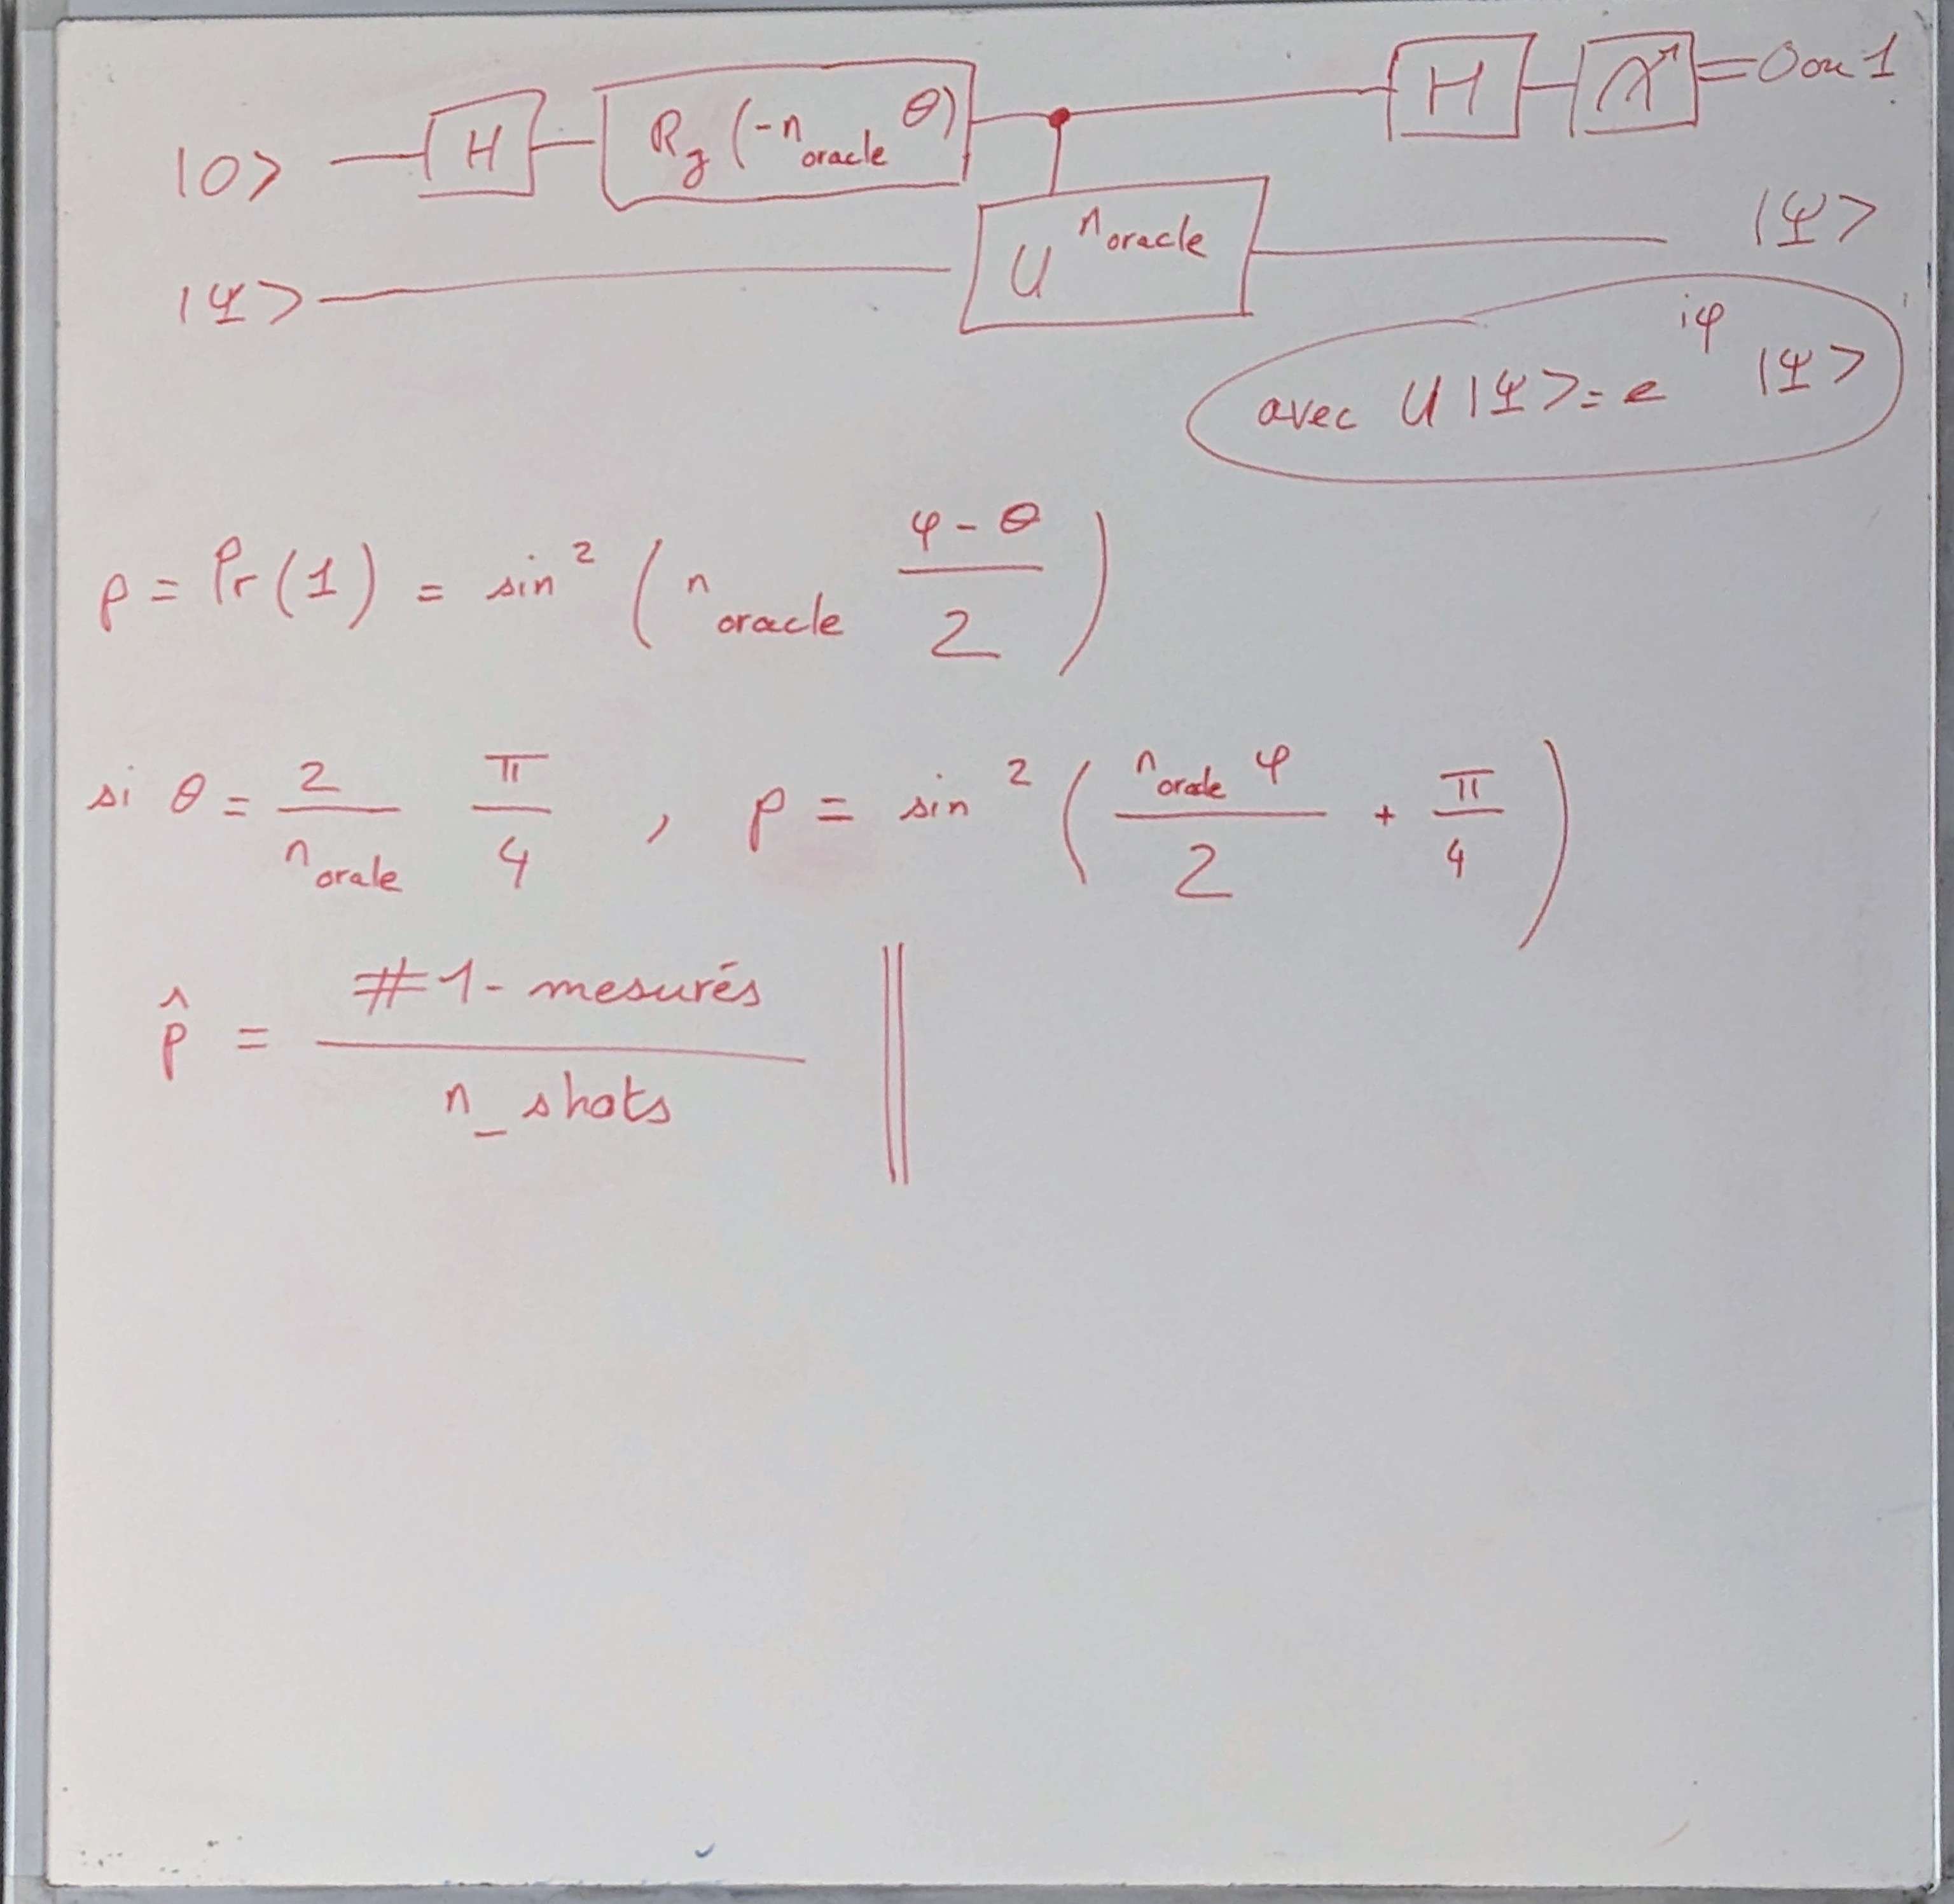 |0> H R_z (-n_oracle θ) H = 0 ou 1
|Ψ> U^n_oracle |Ψ>
avec U |Ψ> = e^iφ |Ψ>
p = Pr(1) = sin² (n_oracle (φ - θ)/2)
si θ = 2/n_orale π/4 , p = sin² (n_oracle φ/2 + π/4)
p̂ = #1-mesurés / n_shots